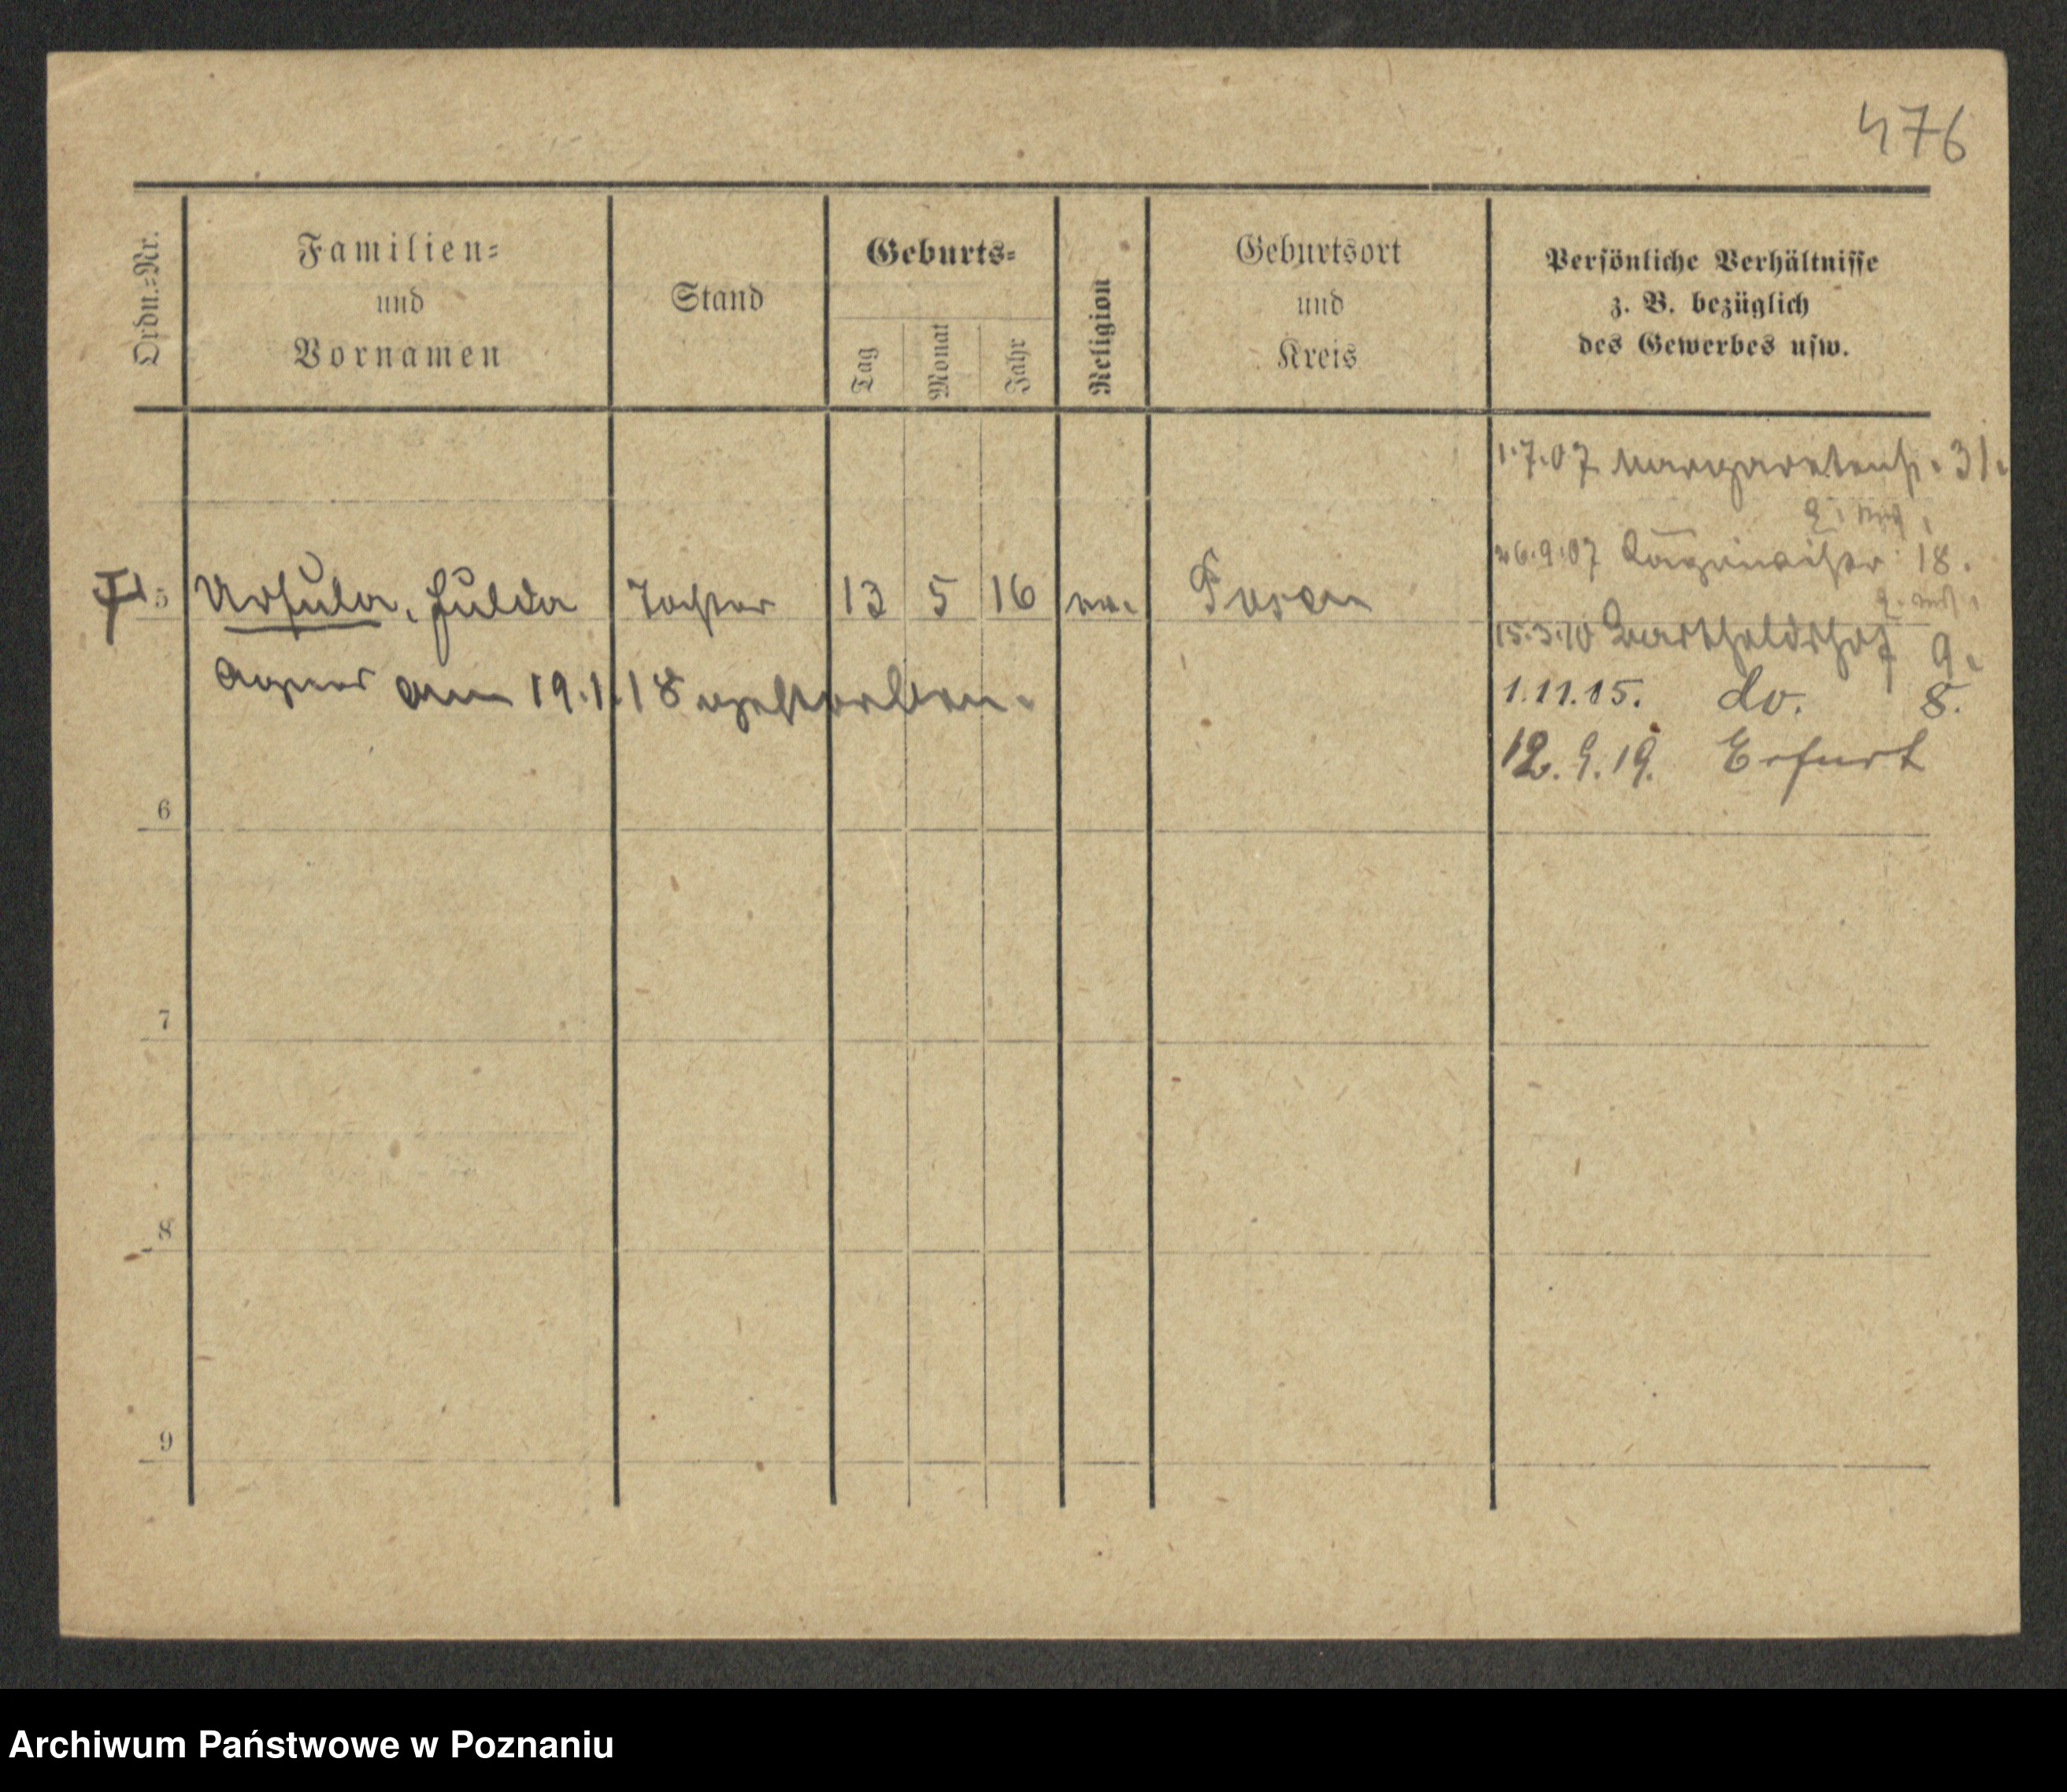 476
Ordn.-Nr.
Familien-
und
Vornamen
Stand
Geburts-
Tag
Monat
Jahr
Religion
Geburtsort
und
Kreis
Persönliche Verhältnisse
z. B. bezüglich
des Gewerbes usw.
1.7.07 Margaretenstr. 31.
26.9.07 18.
5 Ursula, Hulda Tochter 13 5 16 ev. Posen
15.3.10 9.
Agnes am 19.1.18 gestorben.
1.11.15. do. 8.
12.9.19. Erfurt
6
7
8
9
Archiwum Państwowe w Poznaniu